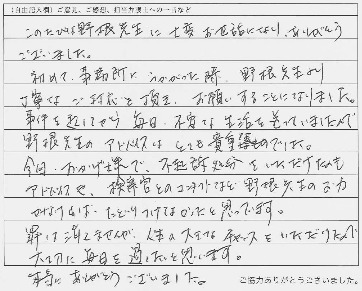 (自由記入欄)ご意見、ご感想、担当弁護士への一言など
このたびは野根先生に大変お世話になり、ありがとう
ございました。
初めて、事務所にうかがった際、野根先生より
丁寧なご対応を頂き、お願いすることになりました。
事件を起こしてから毎日、不安な生活を送っていましたので
野根先生のアドバイスはとても貴重なものでした。
今回、おかげ様で、不起訴処分をいただけたのも
アドバイスや、検察官とのコンタクトなど野根先生のお力
がなければ、たどりつけなかったと思っています。
罪は消えませんが、人生の大きなチャンスをいただけたので
大切に毎日を過したいと思います。
本当にありがとうございました。
ご協力ありがとうございました。